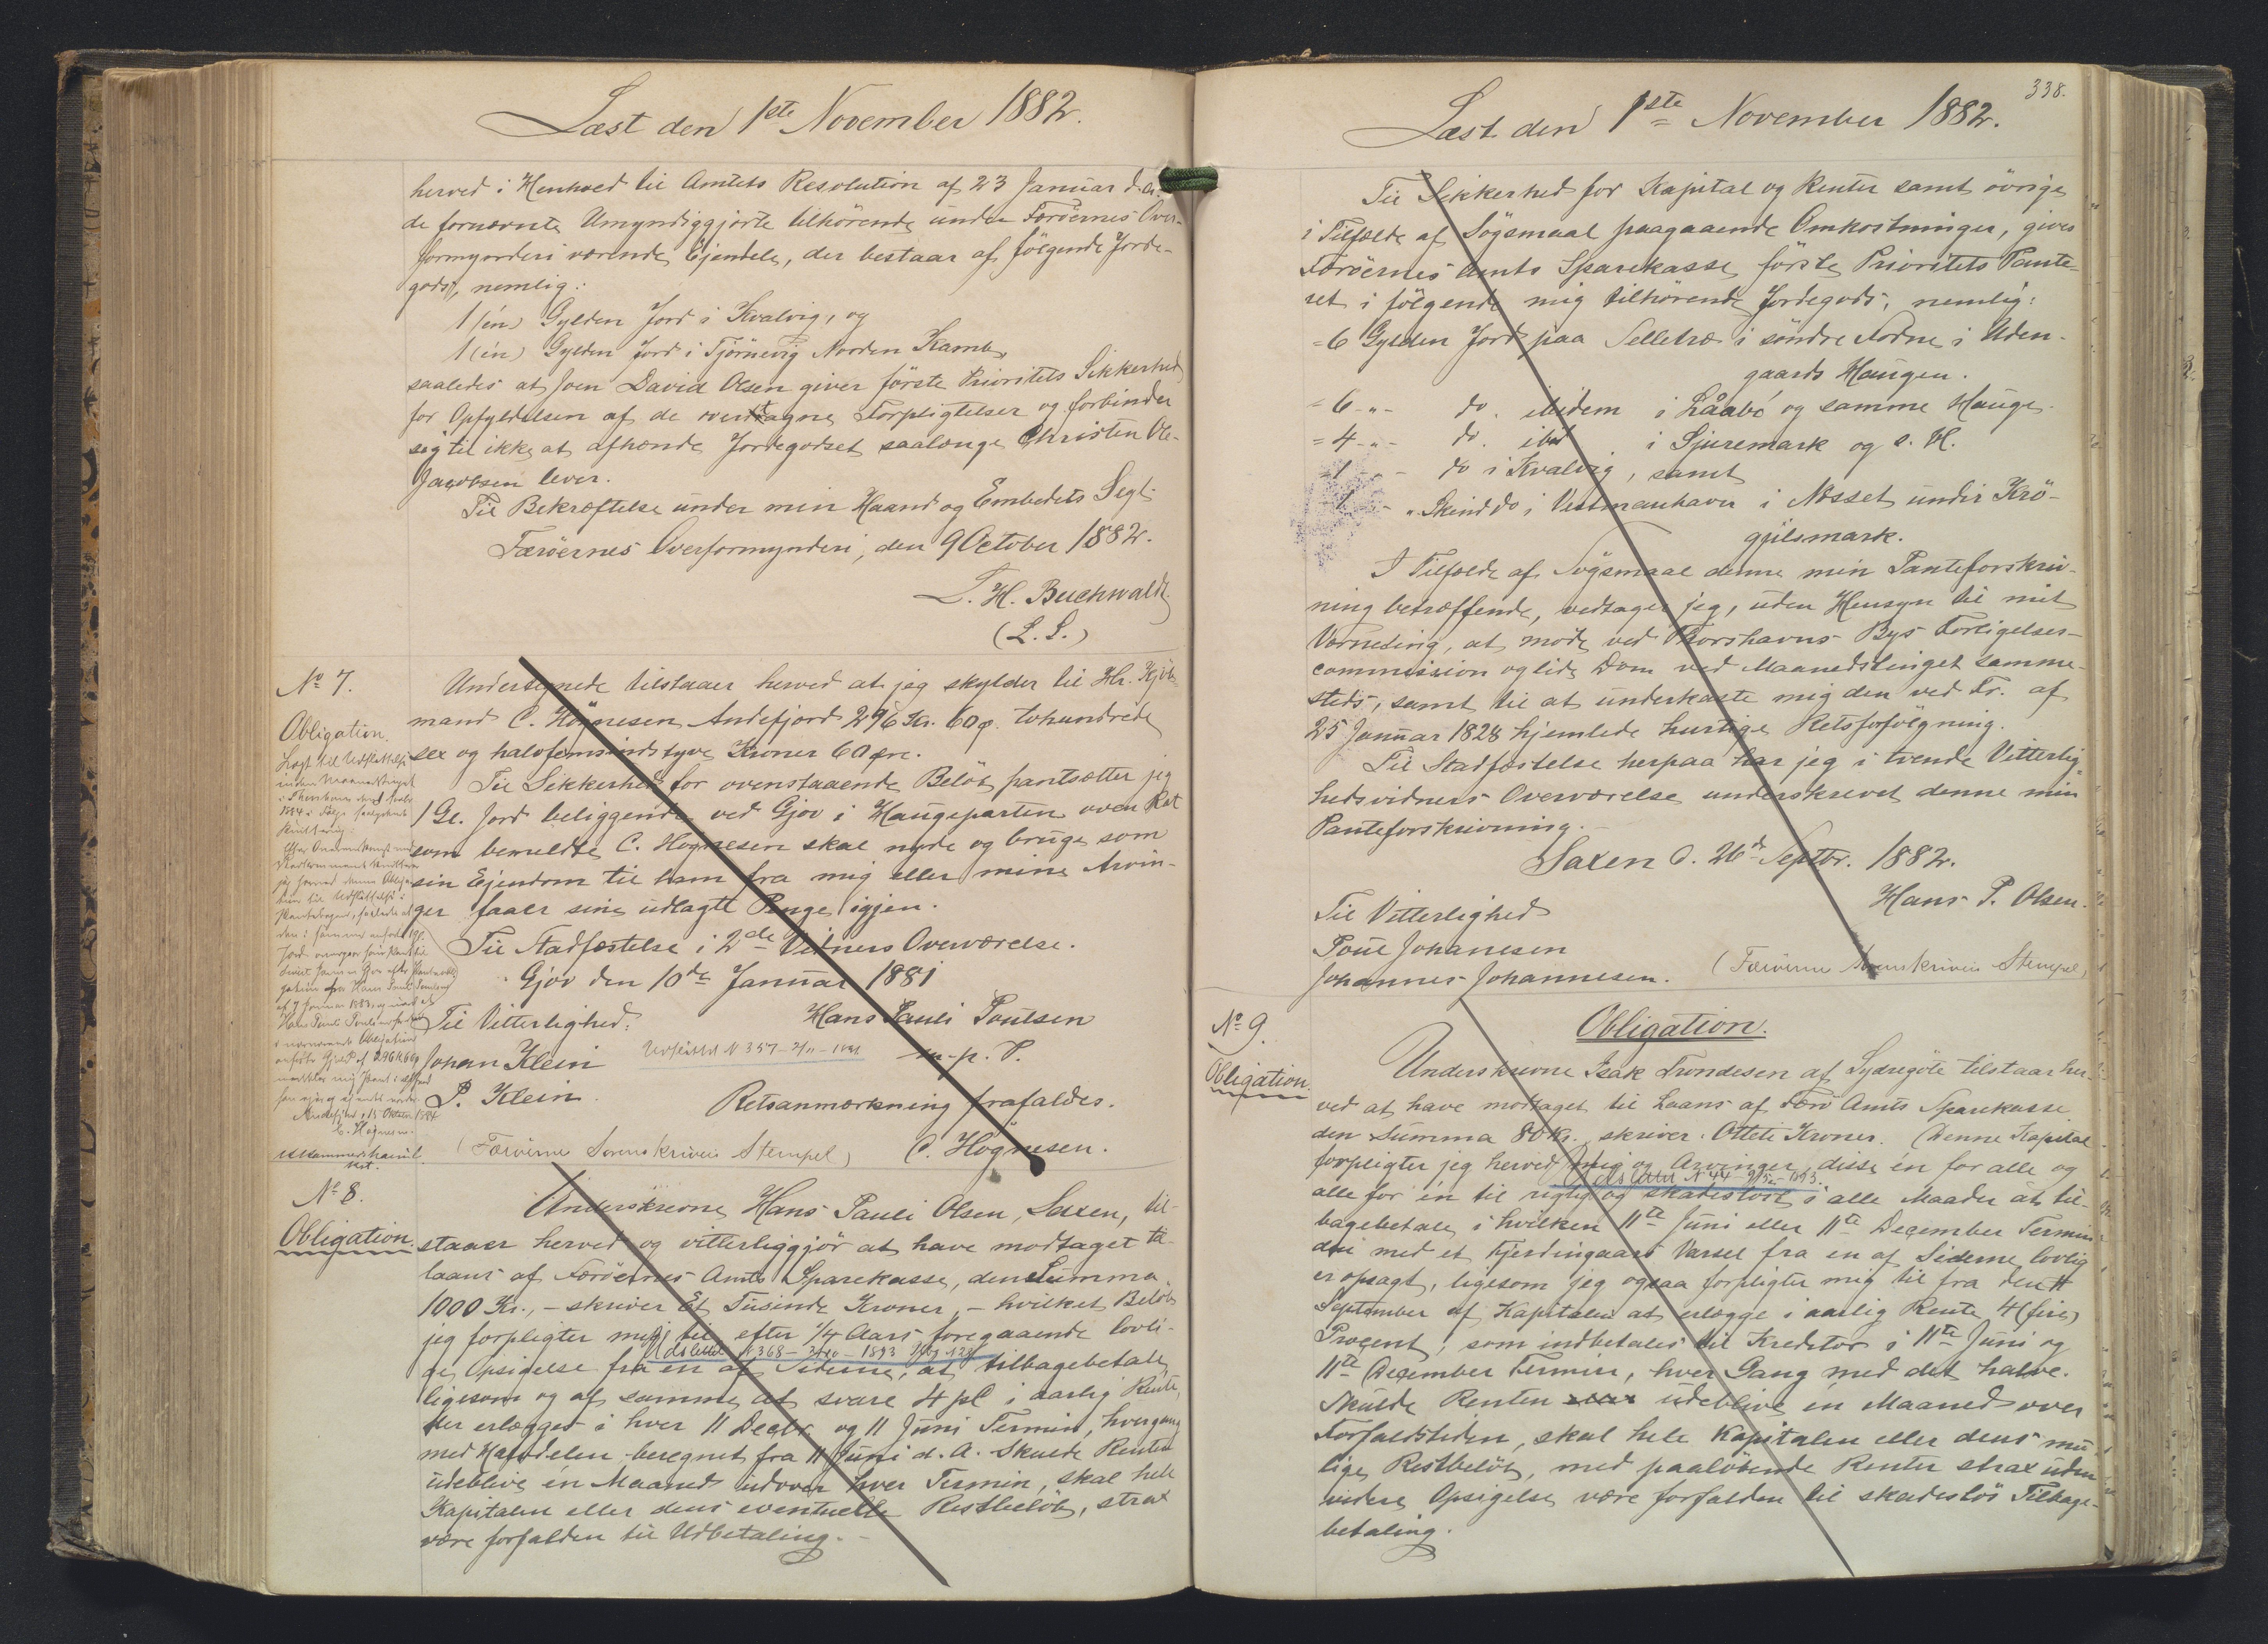 Læst den 1ste November 1882.
herved i Henhold til Amtets Resolution af 23 Januar d. A.
de fornævnte Umyndiggjorte tilhørende under Færöernes Over-
formynderi værende Ejendele, der bestaar af følgende Jorde-
gods, nemlig:
1 (én) Gylden Jord i Kvalvig, og
1 (én) Gylden Jord i Tjörnevig Norden Kamb,
saaledes at Joen David Olsen giver første Prioritets Sikkerhed
for Opfyldelsen af de overtagne Forpligtelser og forbinder
sig til ikke at afhænde Jordegodset saalænge Christen Ole
Jacobsen lever.
Til Bekræftelse under min Haand og Embedets Segl.
Færöernes Overformynderi, den 9 October 1882.
L. H. Buchwald.
(L. S.)
No 7.
Obligation.
Undertegnede tilstaaer herved at jeg skylder til Hr. Kjöb-
mand C. Högnesen Andefjord 296 Kr. 60 ø. tohundrede
sex og halvfemsindstyve Kroner 60 øre.
Til Sikkerhed for ovenstaaende Beløb pantsætter jeg
1 Gl. Jord beliggende ved Gjov i Haugeparten oven Rat
som bemeldte C. Hognesen skal nyde og bruge som
sin Ejendom til ham fra mig eller mine Arvin-
ger faaer sine udlagte Penge igjen.
Til Stadfæstelse i 2de Vidners Overværelse.
Gjov den 10de Januar 1881
Til Vitterlighed: Hans Pauli Poulsen
Johan Klein Udslettet N 357 - 2/11 - 1884 m. p. P.
P. Klein. Retsanmærkning frafaldes.
(Færöerne Sorenskriveris Stempel) C. Högnesen.
No 8.
Obligation.
Underskrevne Hans Pauli Olsen, Saxen, til-
staaer herved og vitterliggjör at have modtaget til
laans af Færöernes Amts Sparekasse, den Summa
1000 Kr., - skriver Et Tusinde Kroner, - hvilket Beløb
jeg forpligter mig til efter 1/4 Aars foregaaende lovli-
ge Opsigelse fra en af Siderne, at tilbagebetale
ligesom og af samme at svare 4 pC i aarlig Rente,
der erlægges i hver 11 Decbr og 11 Juni Termin, hvergang
med Halvdelen beregnet fra 11 Juni d. A. Skulde Renten
udeblive én Maaned udover hver Termin, skal hele
Kapitalen eller dens eventuelle Restbeløb, strax
være forfalden til Udbetaling.
338.
Læst den 1ste November 1882.
Til Sikkerhed for Kapital og Renter samt övrige
i Tilfælde af Søgsmaal paagaaende Omkostninger, gives
Færöernes Amts Sparekasse første Prioritets Pante-
ret i følgende mig tilhørende Jordegods, nemlig:
= 6 Gylden Jord paa Selletræ i søndre Nodne i Uden-
gaards Haugen.
= 6 -"- do. ibidem i Låabö og samme Hauge.
= 4 -"- do. ibid i Sjuremark og s. H.
= 1 - - do i Kvalvig, samt
1 - " Skind do i Vestmanhavn i Nesset undir Krö-
gjilsmark.
I Tilfælde af Søgsmaal denne min Panteforskriv-
ning betræffende, vedtager jeg, uden Hensyn til mit
Værneting, at møde ved Thorshavns Bys Forligelses-
commission og lide Dom ved Maanedstinget samme-
steds, samt til at underkaste mig den ved Fr. af
25 Januar 1828 hjemlede hurtige Retsforfölgning.
Til Stadfæstelse herpaa har jeg i tvende Vitterlig-
hedsvidners Overværelse underskrevet denne min
Panteforskrivning.
Saxen d. 26de Septbr. 1882.
Hans P. Olsen.
Til Vitterlighed
Poul Johanesen
Johannes Johannesen. (Færöerne Sorenskriveris Stempel)
No 9.
Obligation.
Obligation.
Underskrevne Isak Trondesen af Sydregöte tilstaar her-
ved at have modtaget til Laans af Færö Amts Sparekasse
den Summa 80 Kr. skriver: Otteti Kroner. Denne Kapital
forpligter jeg herved mig og Arvinger, disse én for alle og
alle for én til rigtig og skadeslöst i alle Maader at til-
bagebetale, i hvilken 11te Juni eller 11te December Termin
den med et Fjerdingaars Varsel fra en af Siderne lovlig
er opsagt, ligesom jeg ogsaa forpligter mig til fra den 11
September af Kapitalen at erlægge i aarlig Rente 4 (fire)
Procent, som indbetales til Kreditor i 11te Juni og
11te December Termin, hver Gang med det halve.
Skulde Renten udeblive én Maaned over
Forfaldstiden, skal hele Kapitalen eller dens mu-
lige Restbeløb, med paaløbende Renter strax uden
videre Opsigelse være forfalden til skadeslös Tilbage-
betaling.